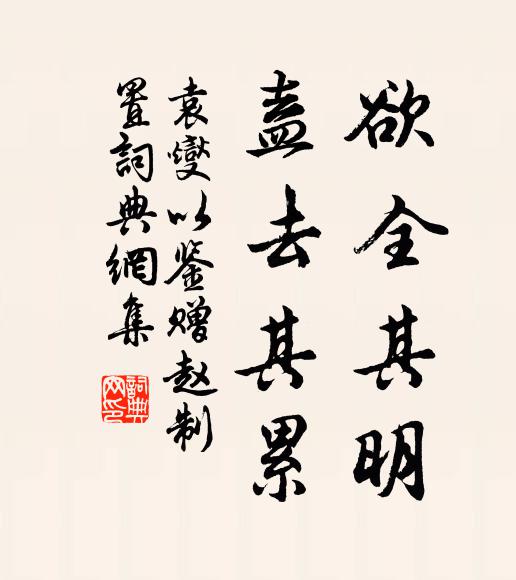 欲全其明
盍去其累
袁燮以鉴赠赵制
置詞典網集
詞典
网印